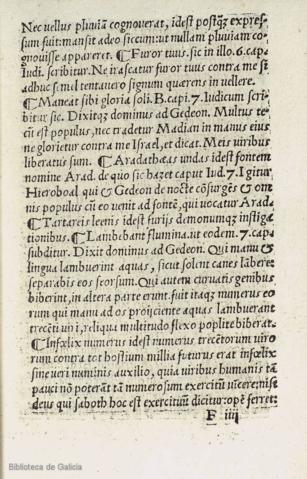 Nec vellus pluviã cognoverat, idest postq̃ʒ expres-
sum fuit: mansit adeo siccum: ut nullam pluviam co-
gnovisse appareret. ¶ Furor tuus. sic in illo. 6. capa
Iudi. scribitur. Ne irascatur furor tuus contra me si
adhuc semel tentavero signum querens in vellere.
¶ Maneat sibi gloria soli. B. capi. 7. Iudicum scri-
bitur sic. Dixitqʒ dominus ad Gedeon. Multus te-
cũ est populus, nec tradetur Madian in manus eius
ne glorietur contra me Israel, et dicat. Meis viribus
liberatus sum. ¶ Aradathæas undas idest fontem
nomine Arad. de quo sic haʒet caput Iud. 7. Igitur
Hieroboal qui & Gedeon de nocte cõsurgẽs & om
nis populus cũ eo venit ad fontẽ, qui vocatur Arada
¶ Tartareis leenis idest furijs demonumqʒ instiga
tionibus. ¶ Lambebant flumina. ut eodem. 7. capa
subditur. Dixit dominus ad Gedeon. Qui manu &
lingua lambuerint aquas, sicut solent canes lãbere:
separabis eos seorsum. Qui autem curvatis genibus
biberint, in altera parte erunt. fuit itaqʒ numerus eo
rum qui manu ad os proijciente aquas lambuerant
trecẽti viri, reliqua multitudo flexo poplite biberat.
¶ Infœlix numerus idest numerus trecẽtorum viro
rum contra tot hostium millia futurus erat infœlix
sine veri numinis auxilio, quia viribus humanis tã
pauci nõ poterãt tã numerosum exercitũ vĩcere: nisi
deus qui saboth hoc est exercituũ dicitur: opẽ ferret:
F iiij
Biblioteca de Galicia